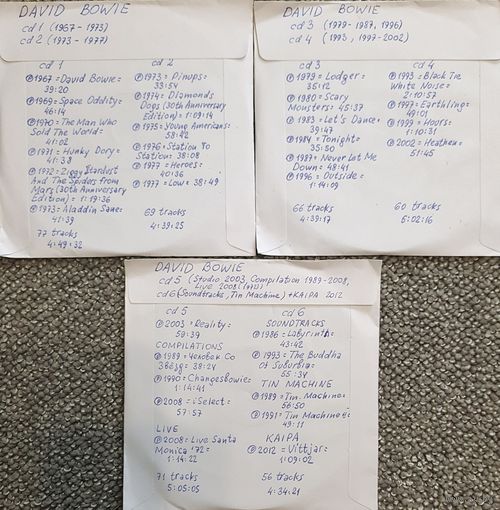 DAVID BOWIE
cd 1 (1967 - 1973)
cd 2 (1973 - 1977)
cd 1
℗ 1967 = David Bowie =
39:20
℗ 1969 = Space Oddity =
46:14
℗ 1970 = The Man Who
Sold The World =
41:02
℗ 1971 = Hunky Dory =
41:38
℗ 1972 = Ziggy Stardust
And The Spiders from
Mars (30th Anniversary
Edition) = 1:19:36
℗ 1973 = Aladdin Sane =
41:39
77 tracks
4:49:32
cd 2
℗ 1973 = Pinups =
33:54
℗ 1974 = Diamonds
Dogs (30th Anniversary
Edition) = 1:09:14
℗ 1975 = Young Americans =
58:42
℗ 1976 = Station To
Station: 38:08
℗ 1977 = Heroes =
40:36
℗ 1977 = Low = 38:49
69 tracks
4:39:25
DAVID BOWIE
cd 3 (1979 - 1987, 1996)
cd 4 (1993, 1997-2002)
cd 3
℗ 1979 = Lodger =
35:12
℗ 1980 = Scary
Monsters = 45:37
℗ 1983 = Let's Dance =
39:47
℗ 1984 = Tonight =
35:50
℗ 1987 = Never Let Me
Down = 48:41
℗ 1996 = Outside =
1:14:09
66 tracks
4:39:17
cd 4
℗ 1993 = Black Tie
White Noise =
2:10:57
℗ 1997 = Earthling =
49:01
℗ 1999 = Hours =
1:10:31
℗ 2002 = Heathen =
51:45
60 tracks
5:02:16
DAVID BOWIE
cd 5 (Studio 2003, Compilation 1989-2008,
Live 2008 (1972))
cd 6 (Soundtracks, Tin Machine) + KAIPA 2012
cd 5
℗ 2003 = Reality =
59:39
COMPILATIONS
℗ 1989 = Человек Со
Звёзд = 38:24
℗ 1990 = Changesbowie =
1:14:41
℗ 2008 = iSelect =
57:57
LIVE
℗ 2008 = Live Santa
Monica '72 =
1:14:22
71 tracks
5:05:05
cd 6
SOUNDTRACKS
℗ 1986 = Labyrinth =
43:42
℗ 1993 = The Buddha
Of Suburbia =
55:34
TIN MACHINE
℗ 1989 = Tin Machine =
56:50
℗ 1991 = Tin Machine II =
49:11
KAIPA
℗ 2012 = Vittjar =
1:09:02
56 tracks
4:34:21